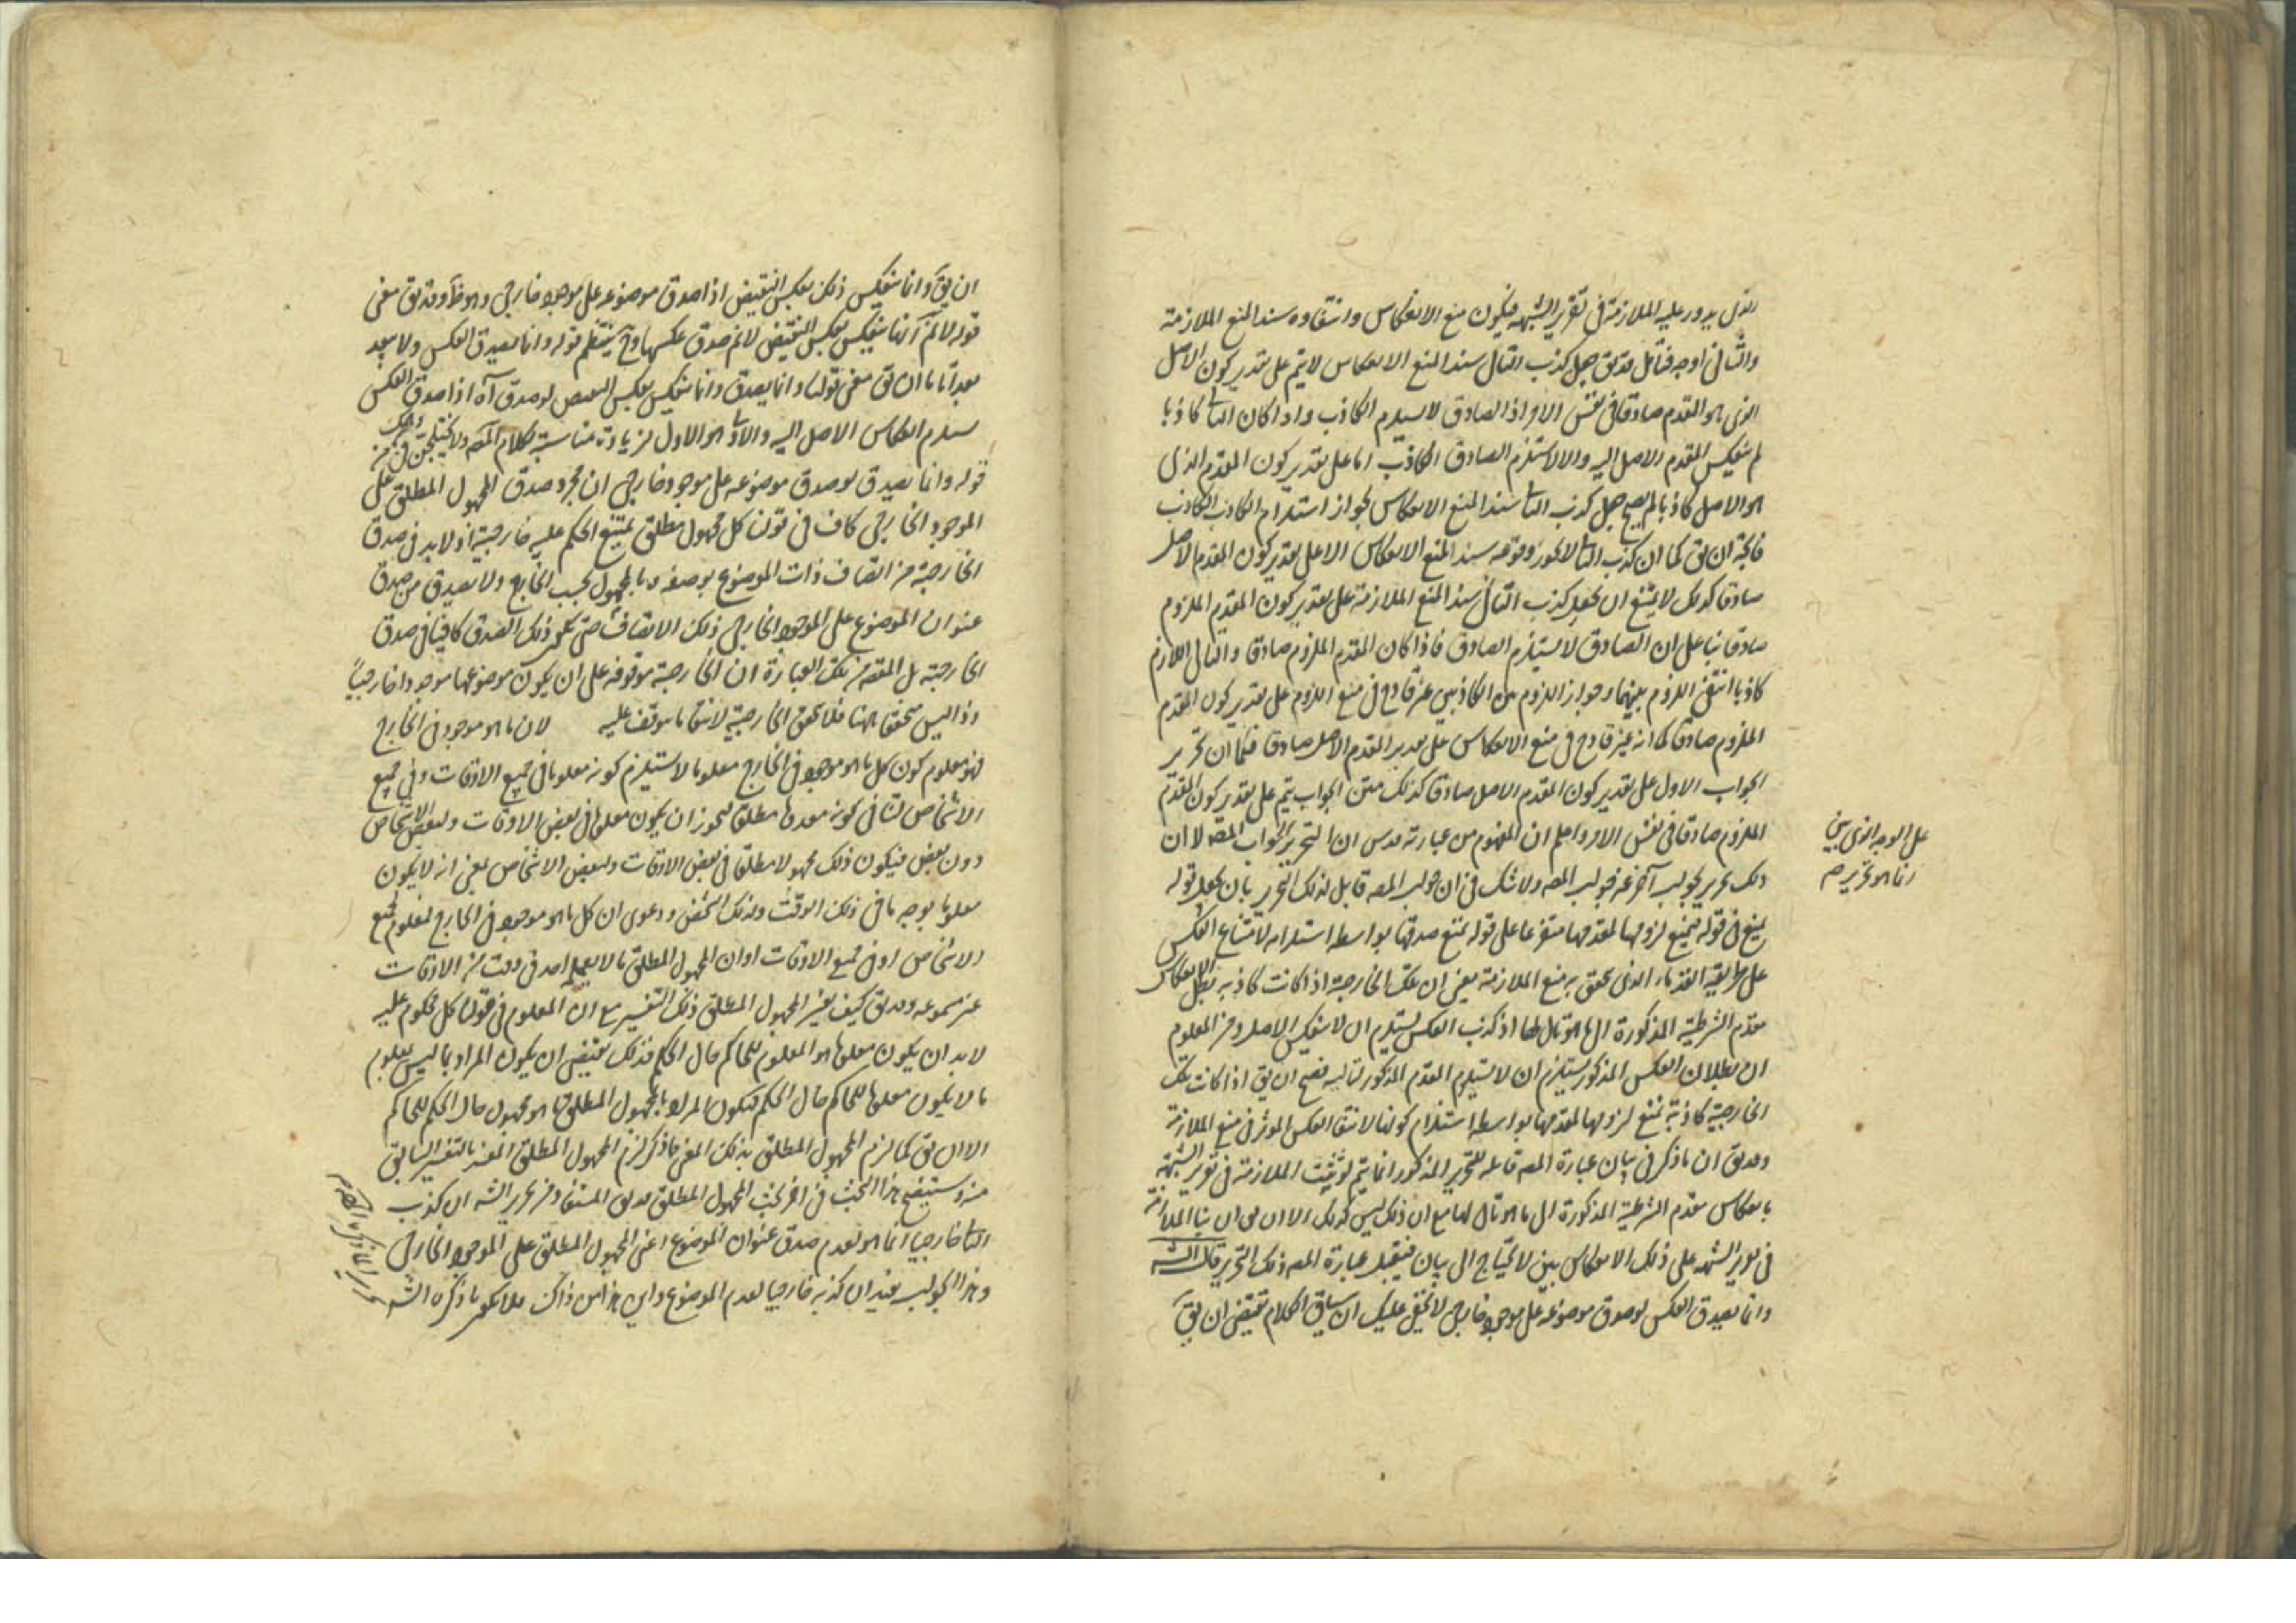 الذى يدور عليه الملازمة فى تقرير الشبهه فيكون منع الانعكاس وانتفاوه سند المنع الملازمة
والثانى اوجه فتأمل قد يق جعل كذب التالى سند المنع الانعكاس لا يتم على تقدير كون الاصل
الذى هو المقدم صادقا فى نفس الامر اذ الصادق لا يستلزم الكاذب واذا كان التا كاذبا
لم ينعكس المقدم الاصل اليه والا لاستلزم الصادق الكاذب اما على تقدير كون المقدم الذى
هو الاصل كاذبا لم يصح جعل كذب التا سند المنع الانعكاس لجواز استلزام الكاذب الكاذب
ان يق كما ان كذب التا لا يجوز وقوعه سند المنع الانعكاس الا على تقدير كون المقدم الاصل
صادقا كذلك لا يمتنع ان يجعل كذب التالى سند المنع الملازمة على تقدير كون المقدم الملزوم
صادقا بنا على ان الصادق لا يستلزم الصادق فاذا كان المقدم الملزوم صادقا والتالى اللازم
كاذبا انتفى اللزوم بينهما وجواز اللزوم بين الكاذبين غير قادح فى منع اللزوم على تقدير كون المقدم
الملزوم صادقا كما انه غير قادح فى منع الانعكاس على تقدير المقدم الاصل صادقا فكما ان تحرير
الجواب الاول على تقدير كون المقدم الاصل صادقا كذلك متن الجواب يتم على تقدير كون المقدم
الملزوم صادقا فى نفس الامر واعلم ان المفهوم من عبارته قدس ان التحرير لجواب المصه لا ان
ذلك تحرير لجواب آخر غير جواب المصه ولا شك فى ان جواب المصه قابل لذلك التحرير بان يجعل قوله
يمنع فى قوله فيمنع لزومها لمقدمها متفرعا على قوله يمتنع صدقها بواسطه استلزامه لامتناع العكس
على طريقة القدماء الذى يحقق به منع الملازمة يعنى ان تلك الخارجية اذا كانت كاذبه بطل الانعكاس
مقدم الشرطية المذكورة الى ما هو تال لها اذ كذب العكس يستلزم ان لا ينعكس الاصل ومن المعلوم
ان بطلان العكس المذكور يستلزم ان لا يستلزم المقدم المذكور لتاليه فصح ان يق اذا كانت تلك
الخارجية كاذبة يمتنع لزومها لمقدمها بواسطه استلزام كونها لانتفا العكس الموثر فى منع الملازمة
وقد يق ان ما ذكر فى بيان عبارة المصه قابله للتحرير المذكور انما يتم لو ثبت الملازمة فى تقرير الشبهة
بانعكاس مقدم الشرطية المذكورة الى ما هو تال لها مع ان ذلك ليس كذلك الا ان يق ان بنا الملازمة
فى تقرير الشبهه على ذلك الانعكاس بين لا يحتاج الى بيان فيقبل عبارة المصه ذلك التحرير قال الشه
وانما يصدق العكس لو صدق موضوعه على موجود خارجى لا يخفى عليك ان سياق الكلام يقتضى ان يق
على الوجه الذى يبين
انما هو تحرير صه
ان يق وانما ينعكس ذلك بعكس النقيض اذا صدق موضوعه على موجود خارجى وهو ظ وقد يق معنى
قوله لا نم انها ينعكس بعكس النقيض لا نم صدق عكسها وح ينتظم قوله وانما يصدق العكس ولا يبعد
ان يق معنى قولنا وانما يصدق وانما ينعكس بعكس النقيض لو صدق آه اذا صدق العكس
يستلزم انعكاس الاصل اليه والاو هو الاول لزيادة مناسبة بكلام المصه ولا يختلجن فى ذهنك من
قوله وانما يصدق لو صدق موضوعه على موجود خارجى ان مجرد صدق المجهول المطلق على
الموجود الخارجى كاف فى قولنا كل مجهول مطلق يمتنع الحكم عليه خارجية اذ لا بد فى صدق
الخارجية من اتصاف ذات الموضوع بوصف المجهول بحسب الخارج ولا يصدق من صدق
عنوان الموضوع على الموجود الخارجى ذلك الاتصاف حتى يكون ذلك الصدق كافيا فى صدق
الخارجية بل المقصود من تلك العبارة ان الخارجية موقوفه على ان يكون موضوعها موجودا خارجيا
واذ ليس متحققا ههنا فلا يتحقق الخارجية لانتفا ما يتوقف عليه لان ما هو موجود فى الخارج
فهو معلوم كون كل ما هو موجود فى الخارج معلوما لا يستلزم كونه معلوما فى جميع الاوقات وفى جميع
الاشخاص لتنافى كونه معدوما مطلقا فيجوز ان يكون معلوما فى بعض الاوقات ولبعض الاشخاص
دون بعض فيكون ذلك مجهولا مطلقا فى بعض الاوقات ولبعض الاشخاص بمعنى انه لا يكون
معلوما بوجه ما فى ذلك الوقت ولذلك الشخص ودعوى ان كل ما هو موجود فى الخارج معلوم لجميع
الاشخاص او فى جميع الاوقات او ان المجهول المطلق ما لا يعلمه احد فى وقت من الاوقات
غير مسموعه وقد يق كيف يفسر المجهول المطلق ذلك التفسير مع ان المعلوم فى قولنا كل محكوم عليه
لا بد ان يكون معلوما هو المعلوم للحاكم حال الحكم فذلك يقتضى ان يكون المراد بما ليس بمعلوم
ما لا يكون معلوما للحاكم حال الحكم فيكون المراد بالمجهول المطلق ما هو مجهول حال الحكم للحاكم
الا ان يق كما لزم المجهول المطلق بذلك المعنى ما ذكر لزم المجهول المطلق المفسر بالتفسير السابق
منه وسيتضح هذا البحث فى آخر بحث المجهول المطلق قد يق المستفاد من تحرير الشه ان كذب
التا خارجيا انما هو لعدم صدق عنوان الموضوع اعنى المجهول المطلق على الموجود الخارجى
وهذا الجواب يفيد ان كذبه خارجيا لعدم الموضوع واين هذا من ذاك فلا يكون ما ذكره الشه